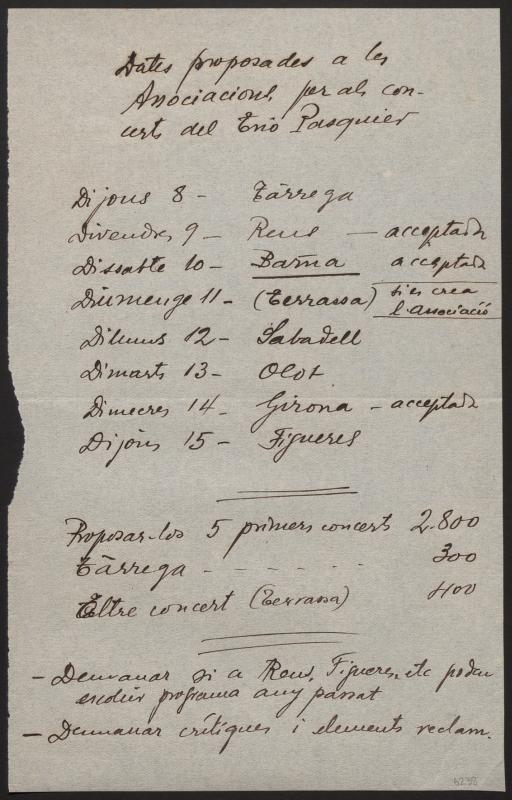 Dates proposades a les
Associacions, per als con-
certs del Trio Pasquier
Dijous 8 - Tàrrega
Divendres 9 - Reus - acceptada
Dissabte 10 - Barna acceptada
Diumenge 11 - (Terrassa) si es crea
l'associació
Dilluns 12 - Sabadell
Dimarts 13 - Olot
Dimecres 14 - Girona - acceptada
Dijous 15 - Figueres
Proposar-los 5 primers concerts 2.800
Tàrrega - - - - - - 300
Altre concert (Terrassa) 400
- Demanar si a Reus, Figueres, etc poden
escollir programa any passat
- Demanar crítiques i elements reclam.